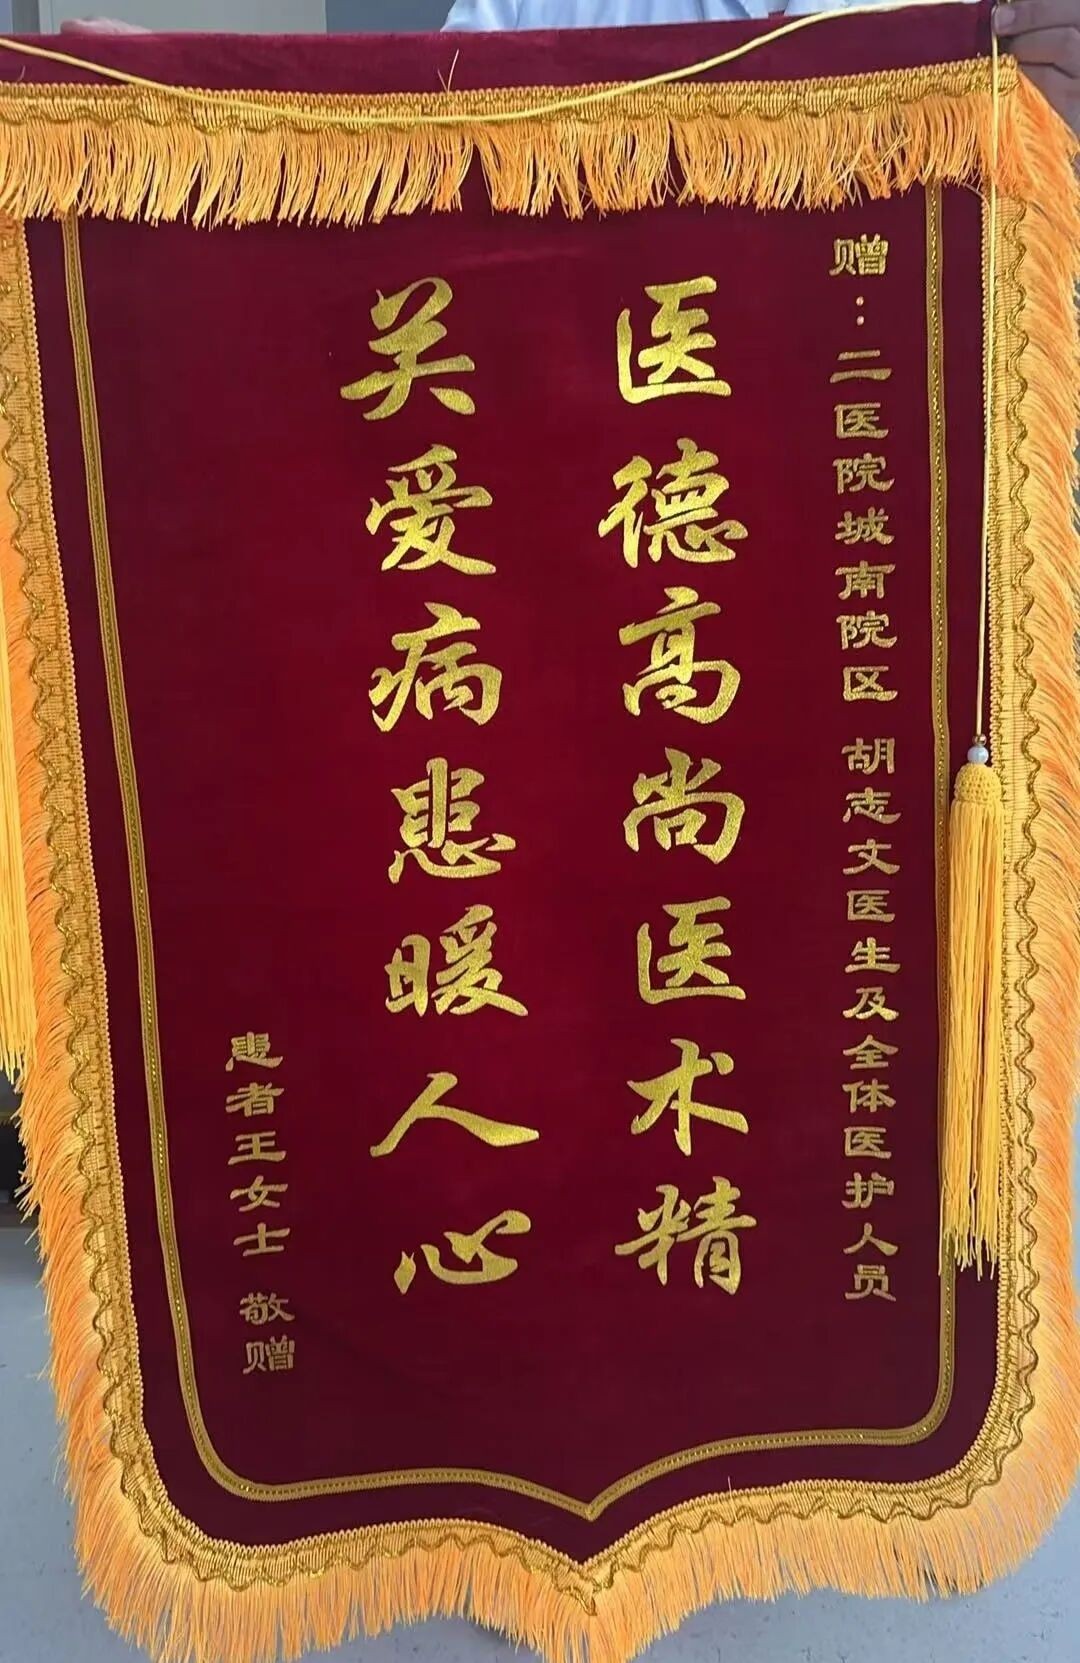 赠：二医院城南院区 胡志文医生及全体医护人员
医德高尚医术精
关爱病患暖人心
患者王女士 敬赠